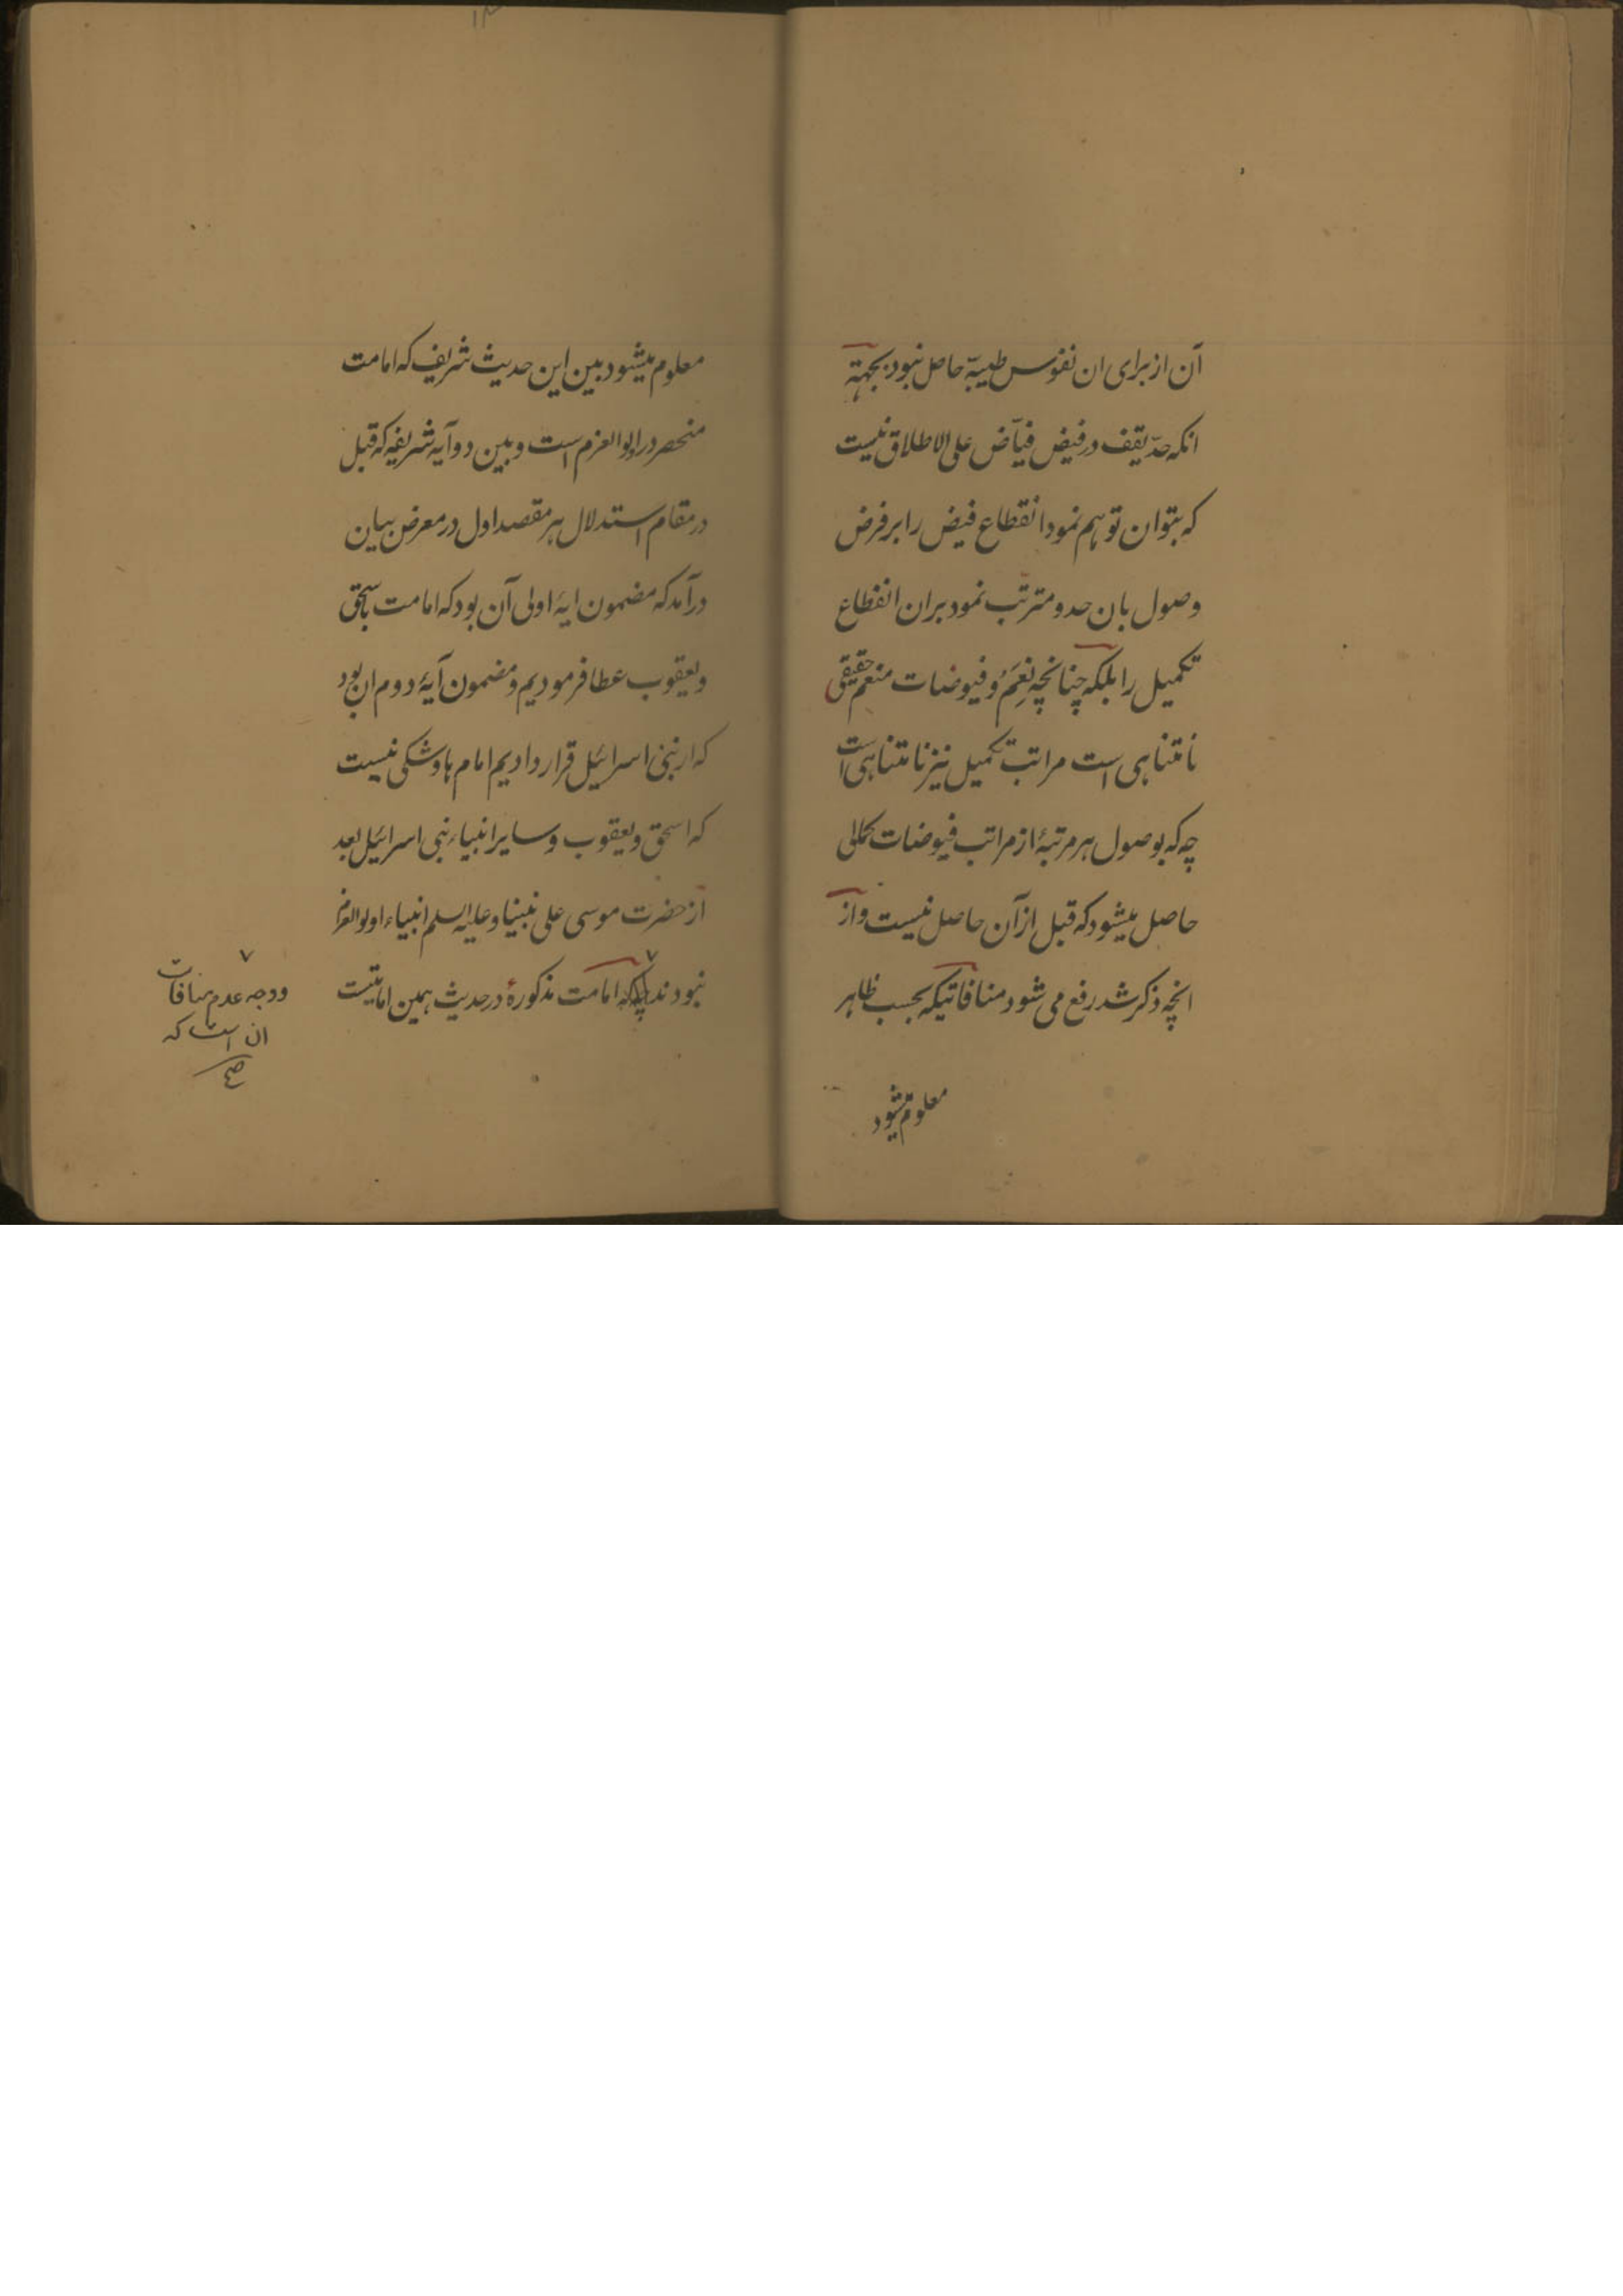 آن از برای ان نفوس طیبّه حاصل نبود بجهة
انکه حدّ یقف در فیض فیّاض علی الاطلاق نیست
که بتوان توهم نمود انقطاع فیض را بر فرض
وصول بان حد و مترتّب نمود بران انقطاع
تکمیل را بلکه چنانچه نِعَمْ و فیوضات منعم حقیقی
نامتناهی است مراتب تکمیل نیز نامتناهی است
چه که بوصول هر مرتبهٔ از مراتب فیوضات کمالی
حاصل میشود که قبل از آن حاصل نیست و از
انچه ذکر شد رفع می شود منافاتیکه بحسب ظاهر
معلوم میشود
معلوم میشود بین این حدیث شریف که امامت
منحصر در اولوا العزم است و بین دو آیه شریفه که قبل
در مقام استدلال بر مقصد اول در معرض بیان
درآمد که مضمون ایهٔ اولی آن بود که امامت باسحق
ویعقوب عطا فرمودیم و مضمون آیهٔ دوم ان بود
که از بنی اسرائیل قرار دادیم امام ها و شکی نیست
که اسحق ویعقوب و سایر انبیاء بنی اسرائیل بعد
از حضرت موسی علی نبینا وعلیه السلم انبیاء اولوالعزم
نبودند امامت مذکورهٔ در حدیث همین امامتیست
و وجه عدم منافات
ان است که
صح